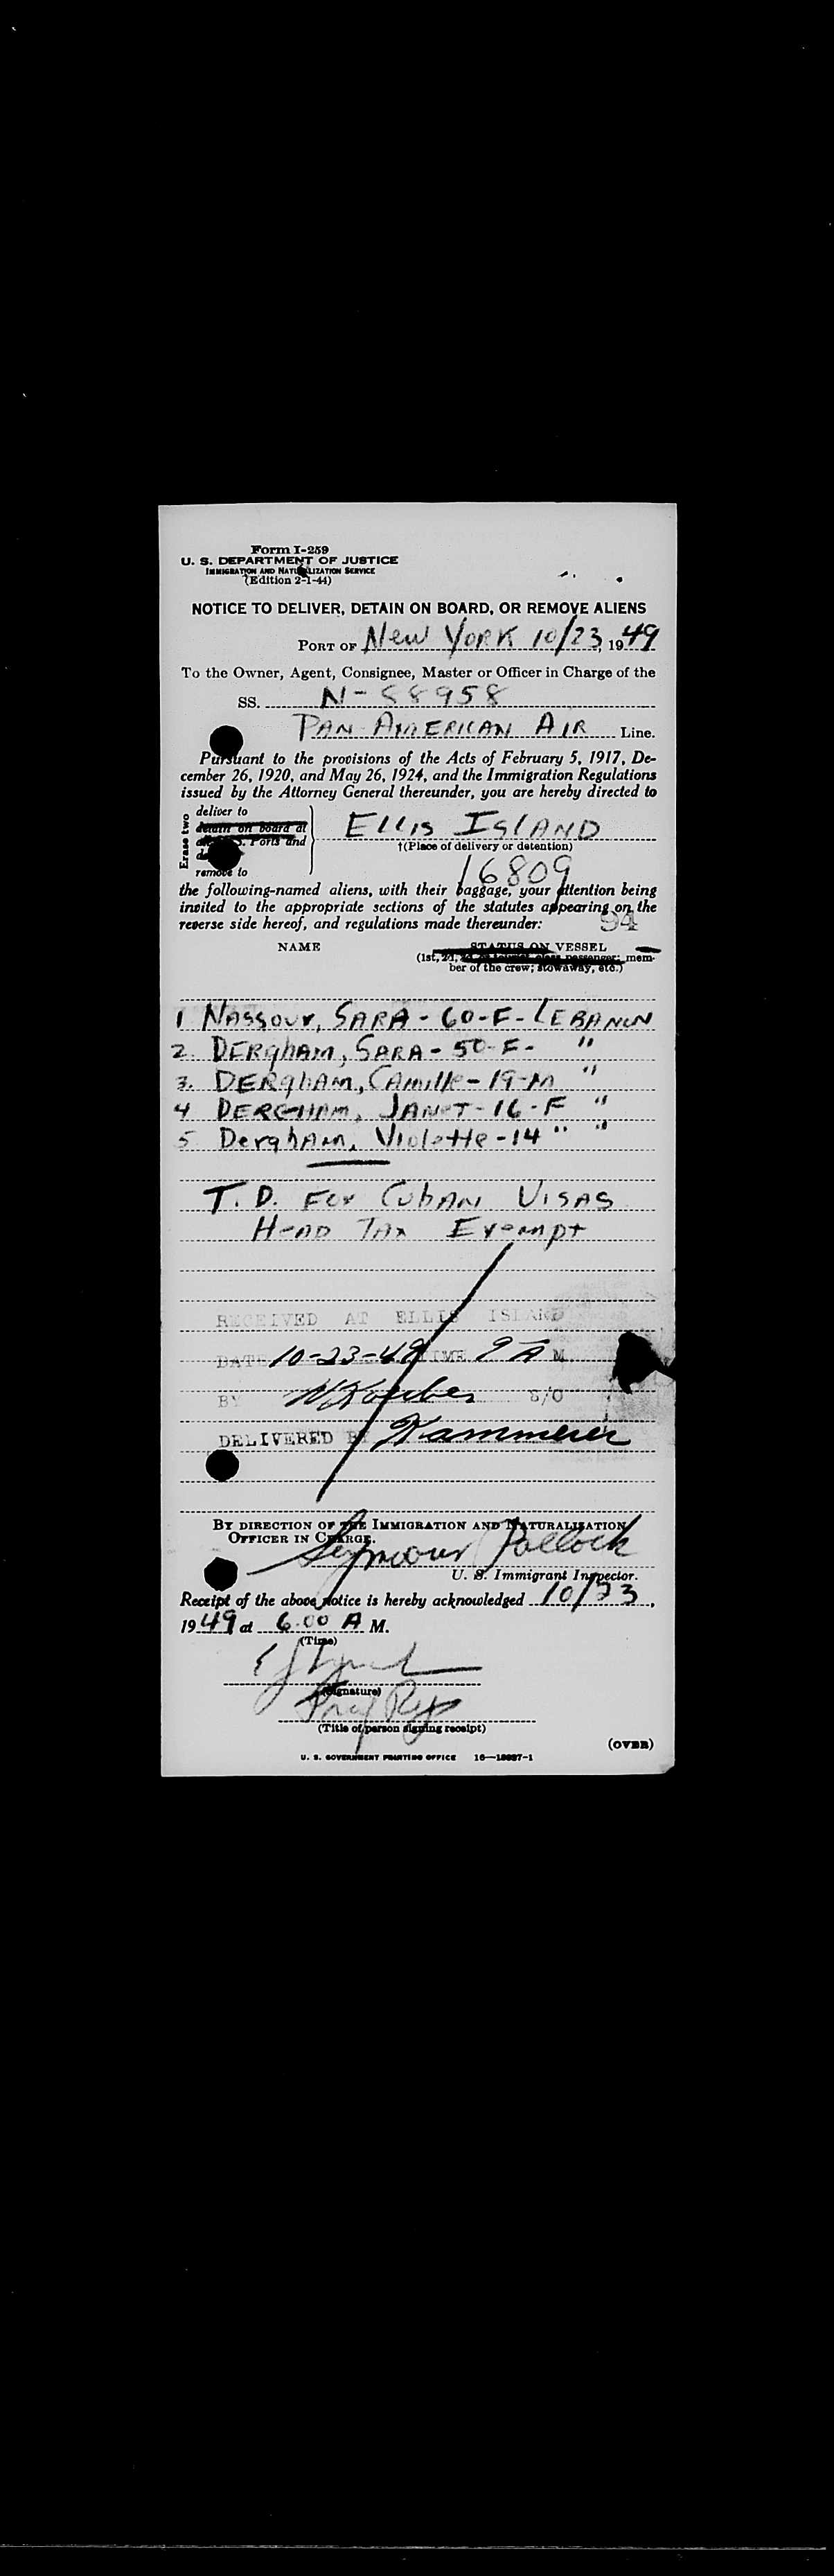 Form I-259
U. S. DEPARTMENT OF JUSTICE
IMMIGRATION AND NATURALIZATION SERVICE
(Edition 2-1-44)
NOTICE TO DELIVER, DETAIN ON BOARD, OR REMOVE ALIENS
PORT OF New York 10/23, 1949
To the Owner, Agent, Consignee, Master or Officer in Charge of the
SS. N-88958
PAN AMERICAN AIR Line.
Pursuant to the provisions of the Acts of February 5, 1917, De-
cember 26, 1920, and May 26, 1924, and the Immigration Regulations
issued by the Attorney General thereunder, you are hereby directed to
Erase two
deliver to
detain on board at
Ports and
remove to
ELLIS ISLAND
†(Place of delivery or detention)
16809
the following-named aliens, with their baggage, your attention being
invited to the appropriate sections of the statutes appearing on the
reverse side hereof, and regulations made thereunder:
94
NAME STATUS ON VESSEL
(1st, 2d, class passenger; mem-
ber of the crew; stowaway, etc.)
1 NASSOUR, SARA - 60-F- LEBANON
2. DERGHAM, SARA - 50-F- "
3. DERGHAM, CAMille - 19-M "
4 DERGHAM, JANET - 16-F "
5 Dergham, Violette - 14 " "
T.D. FOR CUBAN VISAS
HEAD TAX Exempt
RECEIVED AT ELLIS ISLAND
DATE 10-23-49 TIME 9 A M
BY S/O
DELIVERED BY Kammerer
BY DIRECTION OF THE IMMIGRATION AND NATURALIZATION
OFFICER IN CHARGE.
Seymour Pollock
U. S. Immigrant Inspector.
Receipt of the above notice is hereby acknowledged 10/23,
1949 at 6:00 A M.
(Time)
E J Lynch
(Signature)
(Title of person signing receipt)
(OVER)
U. S. GOVERNMENT PRINTING OFFICE